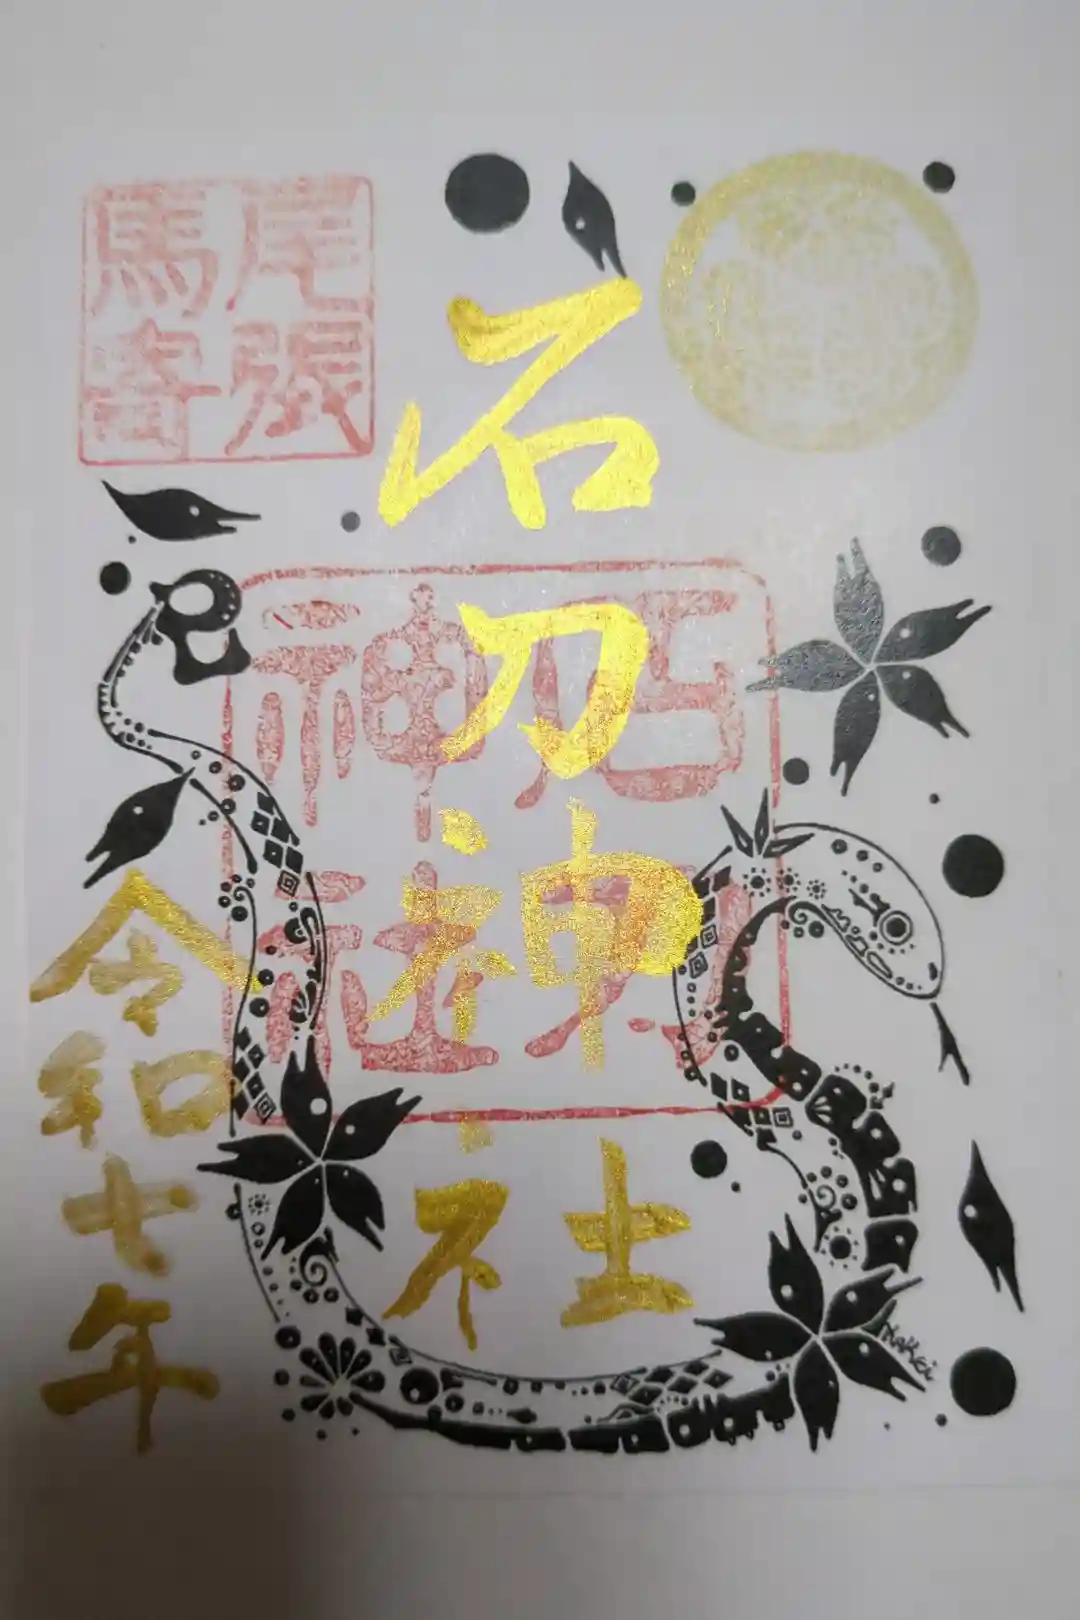 尾張
馬寄
石刀神社
石刀
神社
令和七年
Nakkei